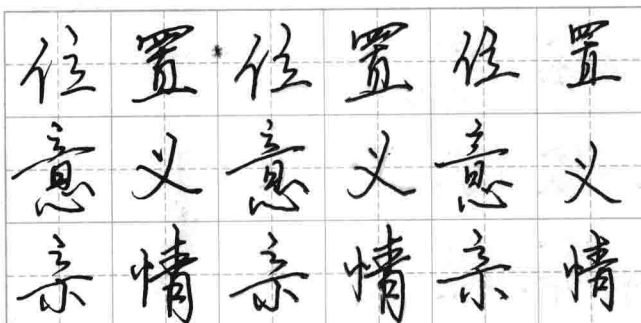 位置位置位置
意义意义意义
亲情亲情亲情